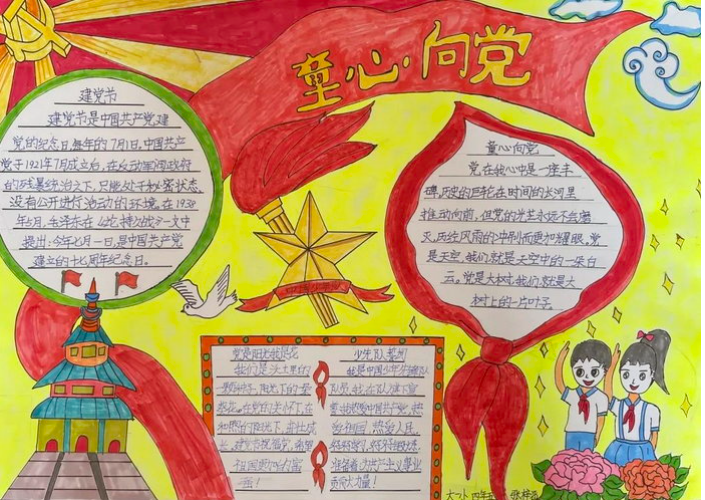 童心·向党
建党节
建党节是中国共产党建
党的纪念日,每年的7月1日,中国共产
党于1921年7月成立后,在反动军阀政府
的残暴统治之下,只能处于秘密状态,
没有公开进行活动的环境,在1938
年5月,毛泽东在《论持久战》一文中
提出:今年七月一日,是中国共产党
建立的十七周年纪念日。
童心向党
党在我心中是一座丰
碑,历史的巨轮在时间的长河里
推动向前,但党的光芒永远不会磨
灭,历经风雨的冲刷而更加耀眼,党
是天空,我们就是天空中的一朵白
云。党是大树,我们就是大
树上的一片叶子。
中国少年先
党是阳光我是花
我们是沃土里的
一颗种子,阳光下的一
花,在党的
祖国更加的富
少年队
我是中国少年先锋队
队员,我在队旗下宣
热爱中国共产党,热
爱祖国,热爱人民,
好好学习,好好锻炼,
准备着:为共产主义事业
贡献力量!